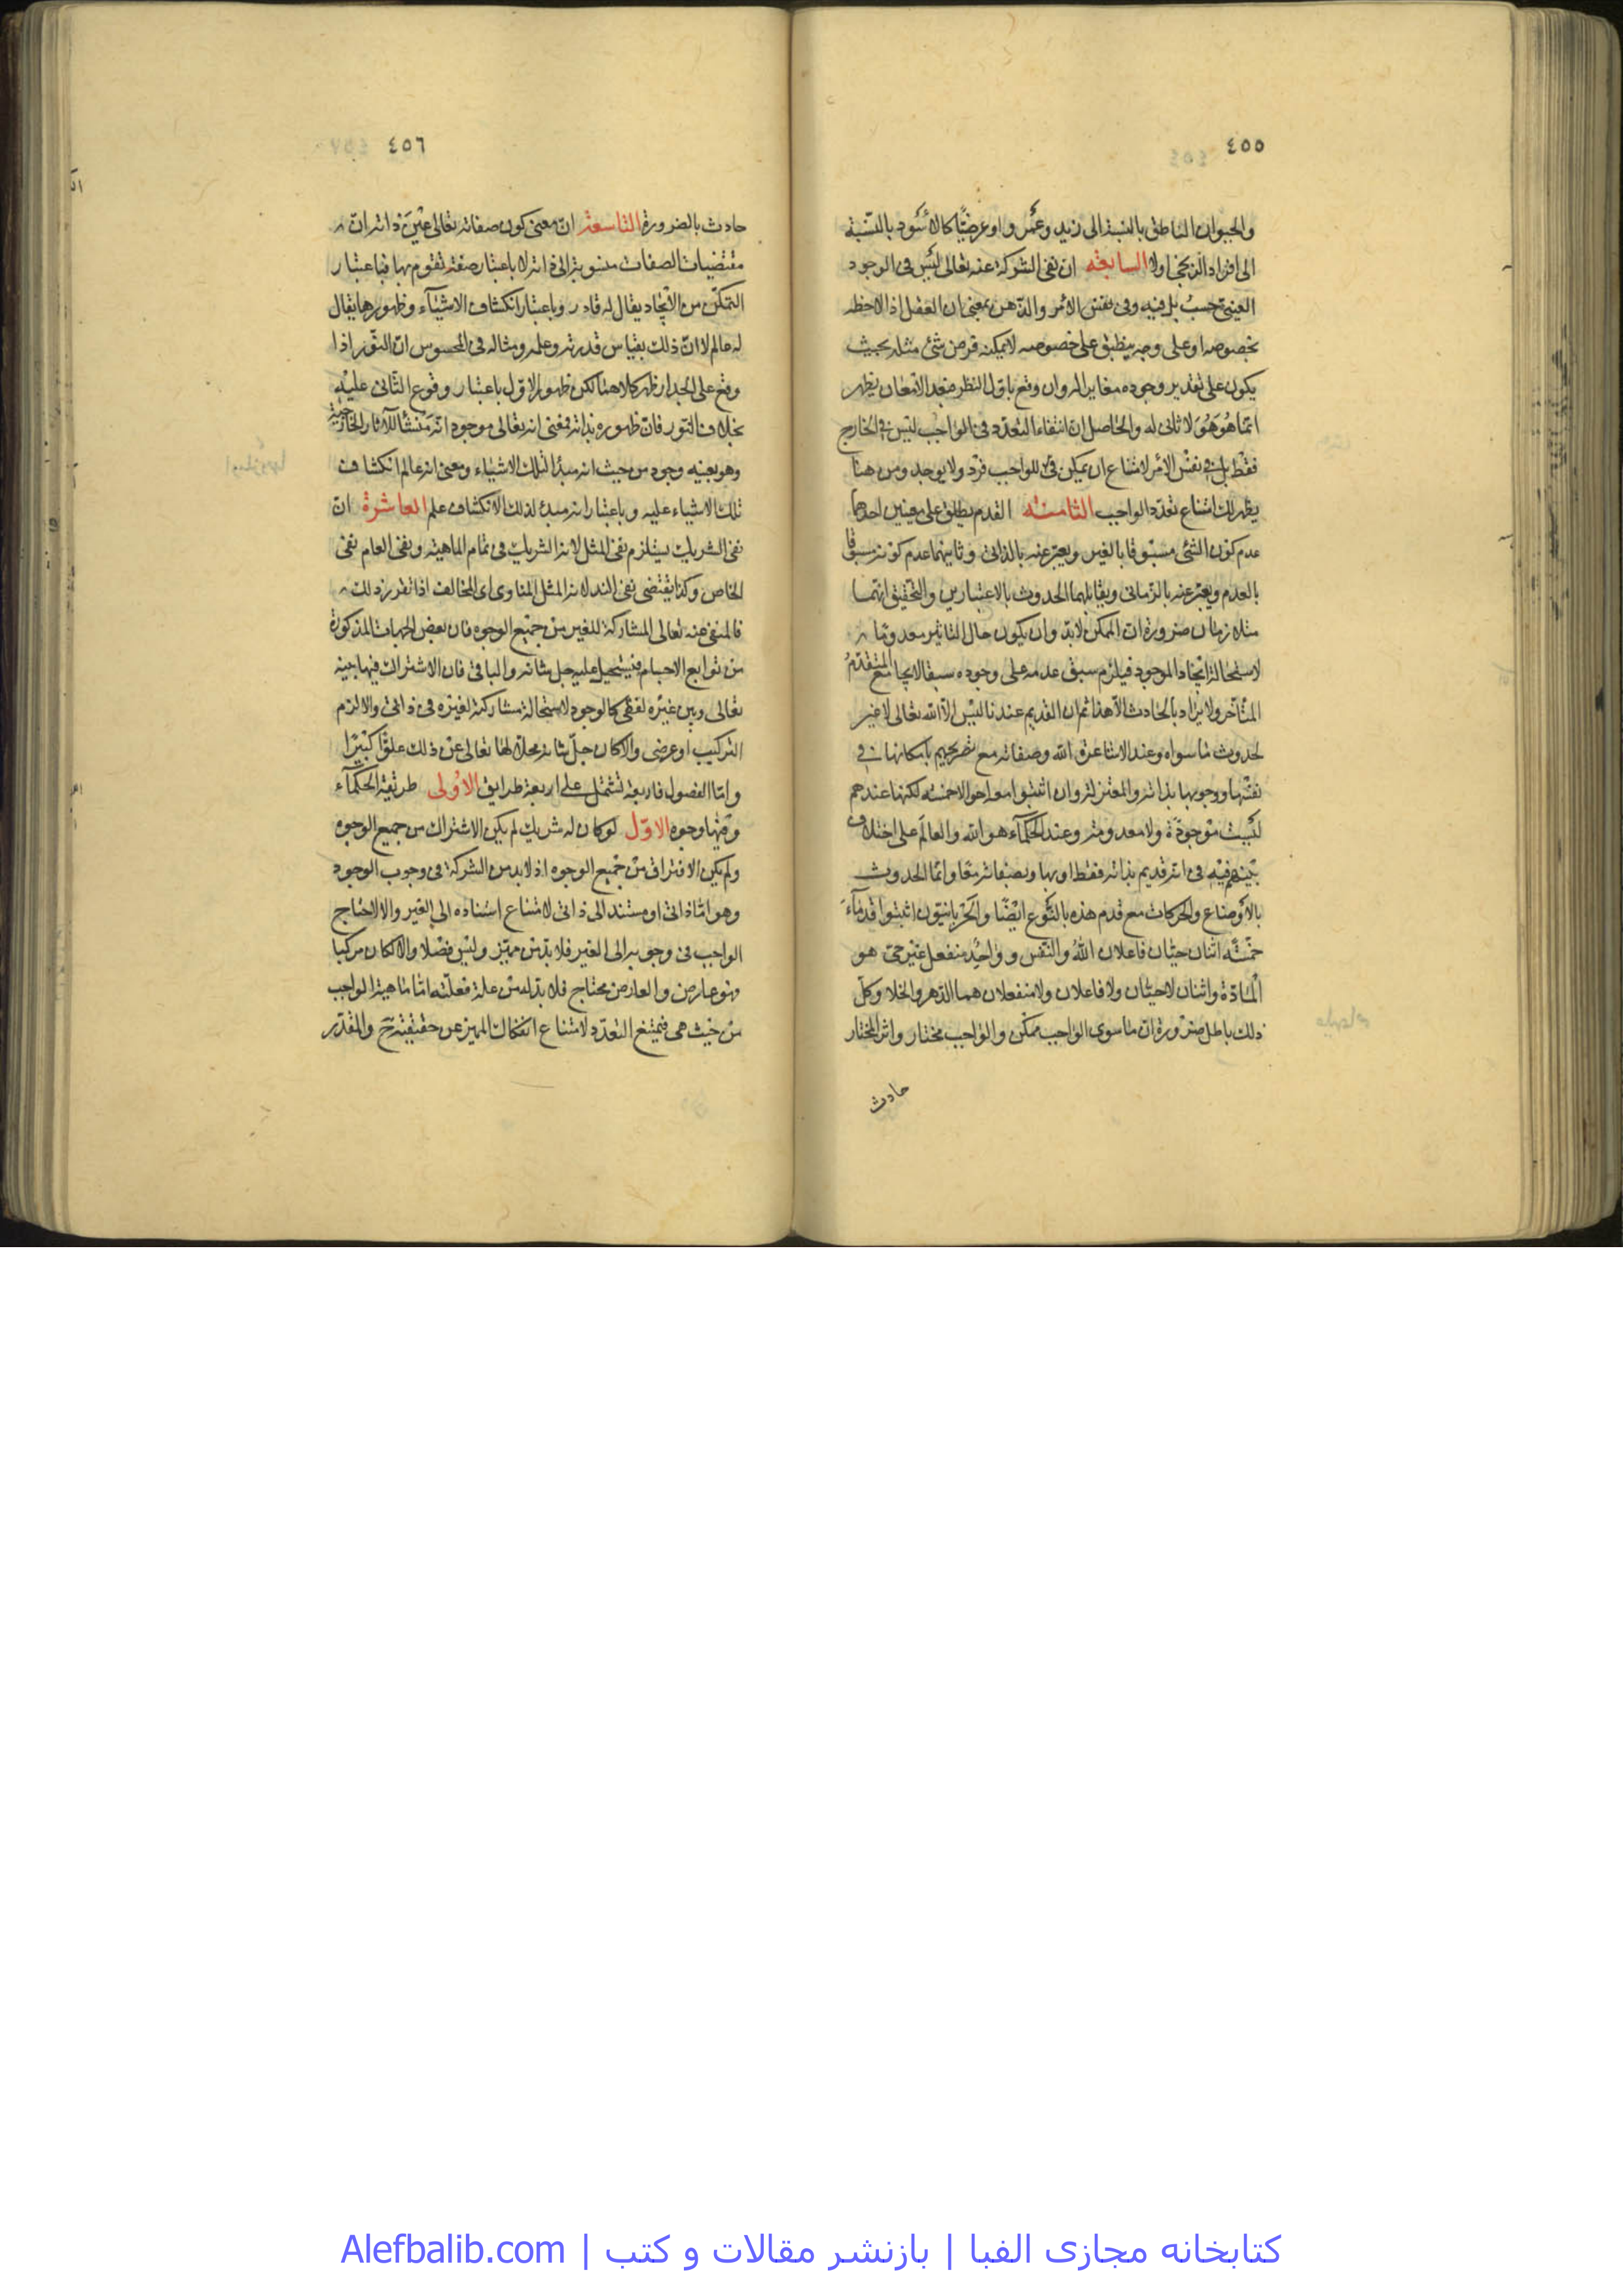 ٤٥٥
والحيوان الناطق بالنسبة الى زيد وعمرو او عرضيًّا كالاسود بالنسبة
الى افراد الزنجى اولا السابعه ان نفى الشركة عنه تعالى ليس فى الوجود
العينى حسب بل فيه وفى نفس الامر والذهن بمعنى ان العقل اذا لاحظه
بخصوصه او على وجه ينطبق على خصوصه لا يمكنه فرض شئ مثله بحيث
يكون على تقدير وجوده مغايرا له وان وقع باول النظر فبعد الامعان يظهر
انما هو هو لا ثانى له والحاصل ان انتفاء التعدد فى الواجب ليس فى الخارج
فقط بل فى نفس الامر لامتناع ان يمكن للواجب فرد ولا يوجد ومن هنا
يظهر لك امتناع تعدد الواجب الثامنه القدم يطلق على معنيين احدهما
عدم كون الشئ مسبوقا بالغير ويعبر عنه بالذاتى وثانيهما عدم كونه مسبوقا
بالعدم ويعبر عنه بالزمانى ويقابلهما الحدوث بالاعتبارين والتحقيق انهما
متلازمان ضرورة ان الممكن لابد وان يكون حال التاثير معدوما
لاستحالة ايجاد الموجود فيلزم سبق عدمه على وجوده سبقا لا يجامع المتقدم
المتأخر ولا يراد بالحادث الا هذا ثم ان القديم عندنا ليس الا الله تعالى لا غير
لحدوث ما سواه وعند الاشاعرة الله وصفاته مع تصريحهم بامكانها فى
نفسها ووجوبها بذاته والمعتزلة وان اثبتوا معه احوالا خمسه لكنها عندهم
ليست موجودة ولا معدومة وعند الحكماء هو الله والعالم على اختلاف
بينهم فيه فى انه قديم بذاته فقط او بها وبصفاته معا وانما الحدوث
بالاوضاع والحركات مع قدم هذه بالنوع ايضا والحرنانيون اثبتوا قدماء
خمسة اثنان حيّان فاعلان الله والنفس وواحد منفعل غير حى هو
المادة واثنان لاحيّان ولا فاعلان ولا منفعلان هما الدهر والخلا وكل
ذلك باطل ضرورة ان ما سوى الواجب ممكن والواجب مختار واثر المختار
حادث
٤٥٦
حادث بالضرورة التاسعة ان معنى كون صفاته تعالى عين ذاته ان
مقتضيات الصفات منسوبة الى ذاته لا باعتبار صفة تقوم بها فباعتبار
التمكن من الايجاد يقال له قادر وباعتبار انكشاف الاشياء وظهورها يقال
له عالم لا ان ذلك بقياس قدرته وعلمه ومثاله فى المحسوس ان النور اذا
وقع على الجدار ظهر كلاهما لكن ظهور الاول باعتبار وقوع الثانى عليه
بخلاف النور فان ظهوره بذاته فمعنى انه تعالى موجود انه منشأ للآثار الخارجية
وهو بعينه وجود من حيث انه مبدأ لتلك الاشياء ومعنى انه عالم انكشاف
تلك الاشياء عليه وباعتبار انه مبدء لذلك الانكشاف علم العاشرة ان
نفى الشريك يستلزم نفى المثل لانه الشريك فى تمام الماهية ونفى العام نفى
الخاص وكذا يقتضى نفى الند لانه المثل المناوى اى المخالف اذا تقرر ذلك
فالمنفى عنه تعالى المشاركة للغير من جميع الوجوه فان بعض الجهات المذكورة
من توابع الاجسام فيستحيل عليه جل شانه والباقى فان الاشتراك فيها بينه
تعالى وبين غيره لفظى كالوجود لاستحالة مشاركة لغيره فى ذاتى والا لزم
التركيب او عرضى والا كان جل شانه محلا لها تعالى عن ذلك علوًّا كبيرًا
واما الفصول فاربعة تشتمل على اربعة طرايق الاولى طريقة الحكماء
وفيها وجوه الاول لو كان له شريك لم يكن الاشتراك من جميع الوجوه
ولم يكن الافتراق من جميع الوجوه اذ لابد من الشركة فى وجوب الوجود
وهو اما ذاتى او مستند الى ذاتى لامتناع اسناده الى الغير والا لاحتاج
الواجب فى وجوبه الى الغير فلا بد من مميز وليس فصلا والا كان مركبا
فهو عارض والعارض محتاج فلا بد له من علة فعلته اما ماهية الواجب
من حيث هى فيمتنع التعدد لامتناع انفكاك المميز عن حقيقته ح والمقدر
کتابخانه مجازی الفبا | بازنشر مقالات و کتب | Alefbalib.com